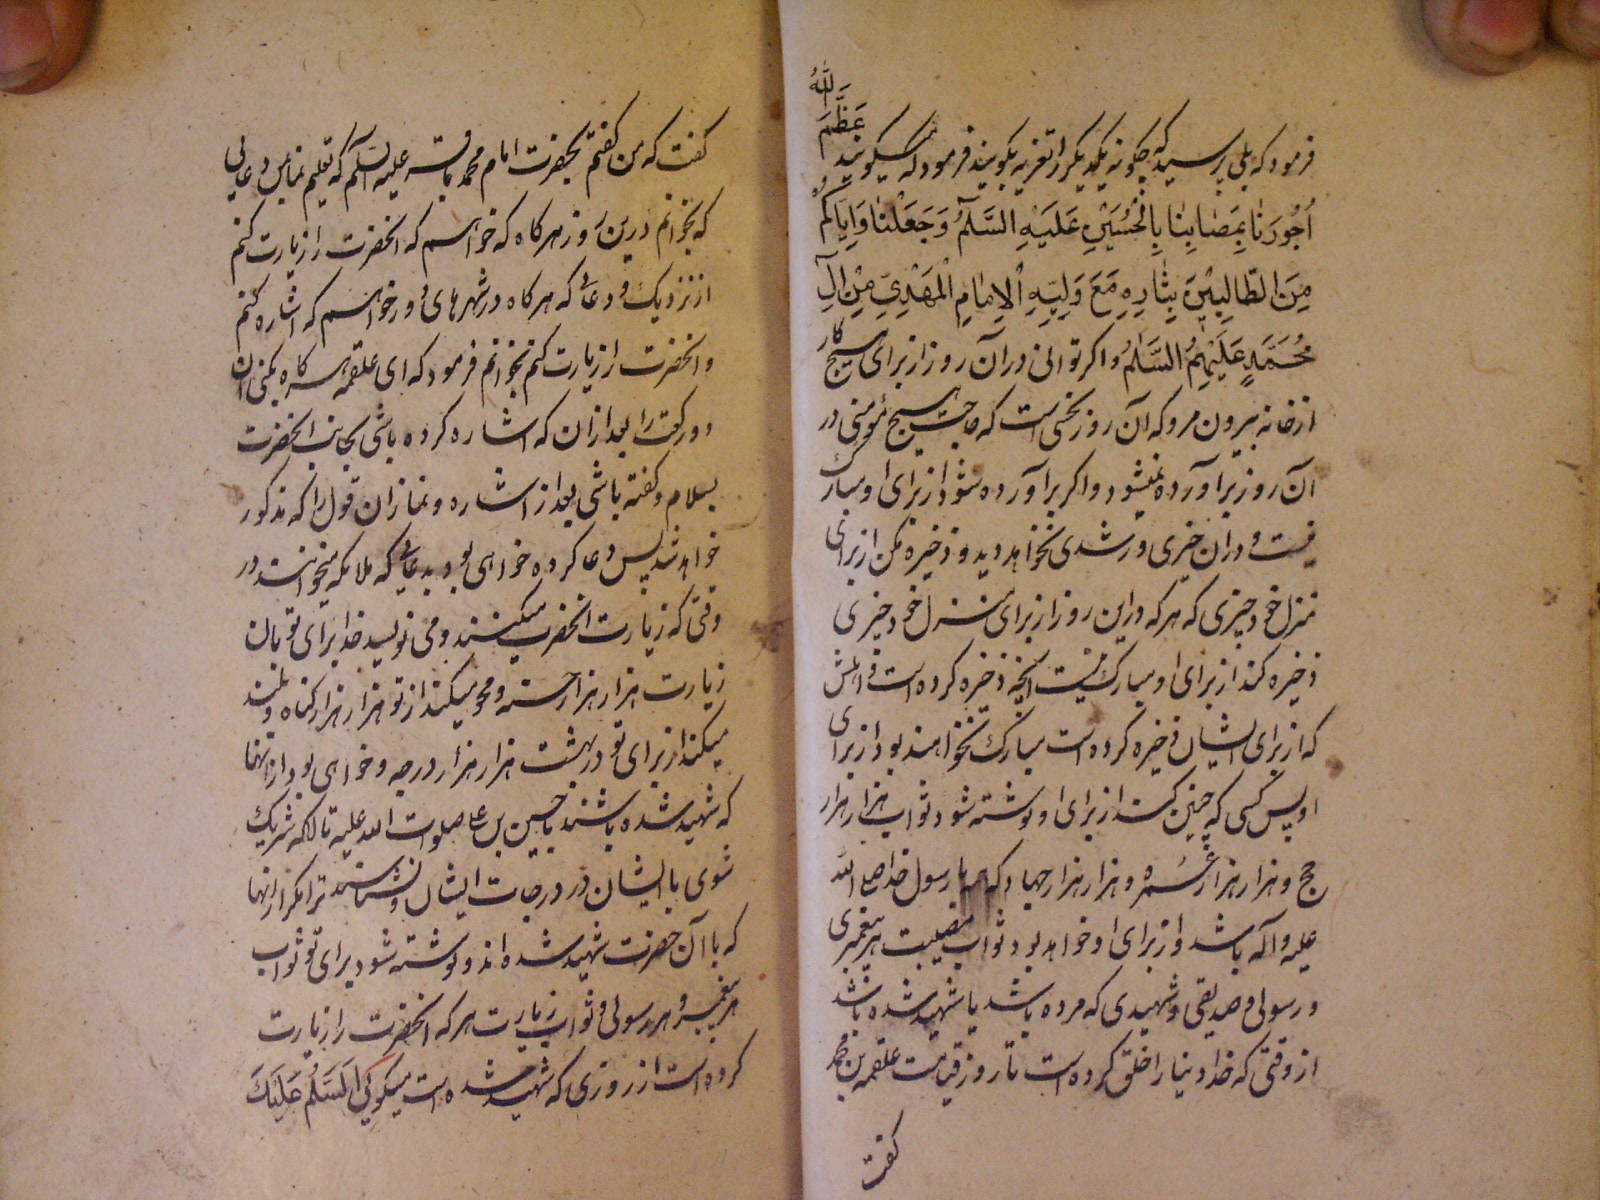 فرمود که بلی پرسید که چگونه یکدیگر را تعزیه بگویند فرمود که میگویند عَظَّمَ اللّٰهُ
اُجُورَنٰا بِمَصٰابِنٰا بِالْحُسَیْنِ عَلَیْهِ السَّلٰمُ وَجَعَلْنٰا وَاِیّٰاکُمْ
مِنَ الطّٰالِبِیْنَ بِثٰارِهِ مَعَ وَلِیِّهِ الْاِمٰامِ الْمَهْدِیِّ مِنْ آلِ
مُحَمَّدٍ عَلَیْهِمُ السَّلٰامُ واکر توانی در آن روز از برای هیچ کار
از خانه بیرون مرو که آن روز نحسی است که حاجت هیچ مؤمنی در
آن روز برآورده نمیشود واکر برآورده شود از برای او مبارک
نیست ودر ان خیری ورشدی نخواهد دید وذخیره مکن از برای
منزل خود چیزی که هرکه در این روز از برای منزل خود چیزی
ذخیره کند از برای او مبارک نیست آنچه ذخیره کرده است واهلش
که از برای ایشان ذخیره کرده است مبارک نخواهند بود از برای
او پس کسی که چنین کند از برای او نوشته شود ثواب هزار هزار
حج وهزار هزار عُمره وهزار هزار جهاد که با رسول خدا صلی الله
علیه وآله باشد واز برای او خواهد بود ثواب مصیبت هر پیغمبری
ورسولی وصدیقی وشهیدی که مرده باشد یا شهید شده باشد
از وقتی که خدا دنیا را خلق کرده است تا روز قیامت علقمه بن محمد
کفت
کفت که من کفتم بحضرت امام محمد باقر علیه السلام که تعلیم نما بمن دعائی
که بخوانم درین روز هرکاه که خواهم که انحضرت را زیارت کنم
از نزدیک ودعائی که هرکاه در شهرهای دور خواهم که اشاره کنم
وانحضرت را زیارت کنم بخوانم فرمود که ای علقمه هرکاه بکنی ان
دو رکعت را بعد ازان که اشاره کرده باشی بجانب انحضرت
بسلام وکفته باشی بعد از اشاره ونماز ان قول را که مذکور
خواهد شد پس دعا کرده خواهی بود بدعائی که ملائکه میخوانند در
وقتی که زیارت انحضرت میکنند ومی نویسد خدا برای تو بان
زیارت هزار هزار حسنه ومحو میکند از تو هزار هزار کناه وبلند
میکند از برای تو در بهشت هزار هزار درجه وخواهی بود از انها
که شهید شده باشند با حسین بن علی صلوات الله علیه تا انکه شریک
شوی با ایشان در درجات ایشان ونشناسند ترا مکر از انها
که با آن حضرت شهید شده اند ونوشته شود برای تو ثواب
هر پیغمبر وهر رسولی وثواب زیارت هرکه انحضرت را زیارت
کرده است از روزی که شهید شده است میکوئی اَلسَّلٰمُ عَلَیْکَ